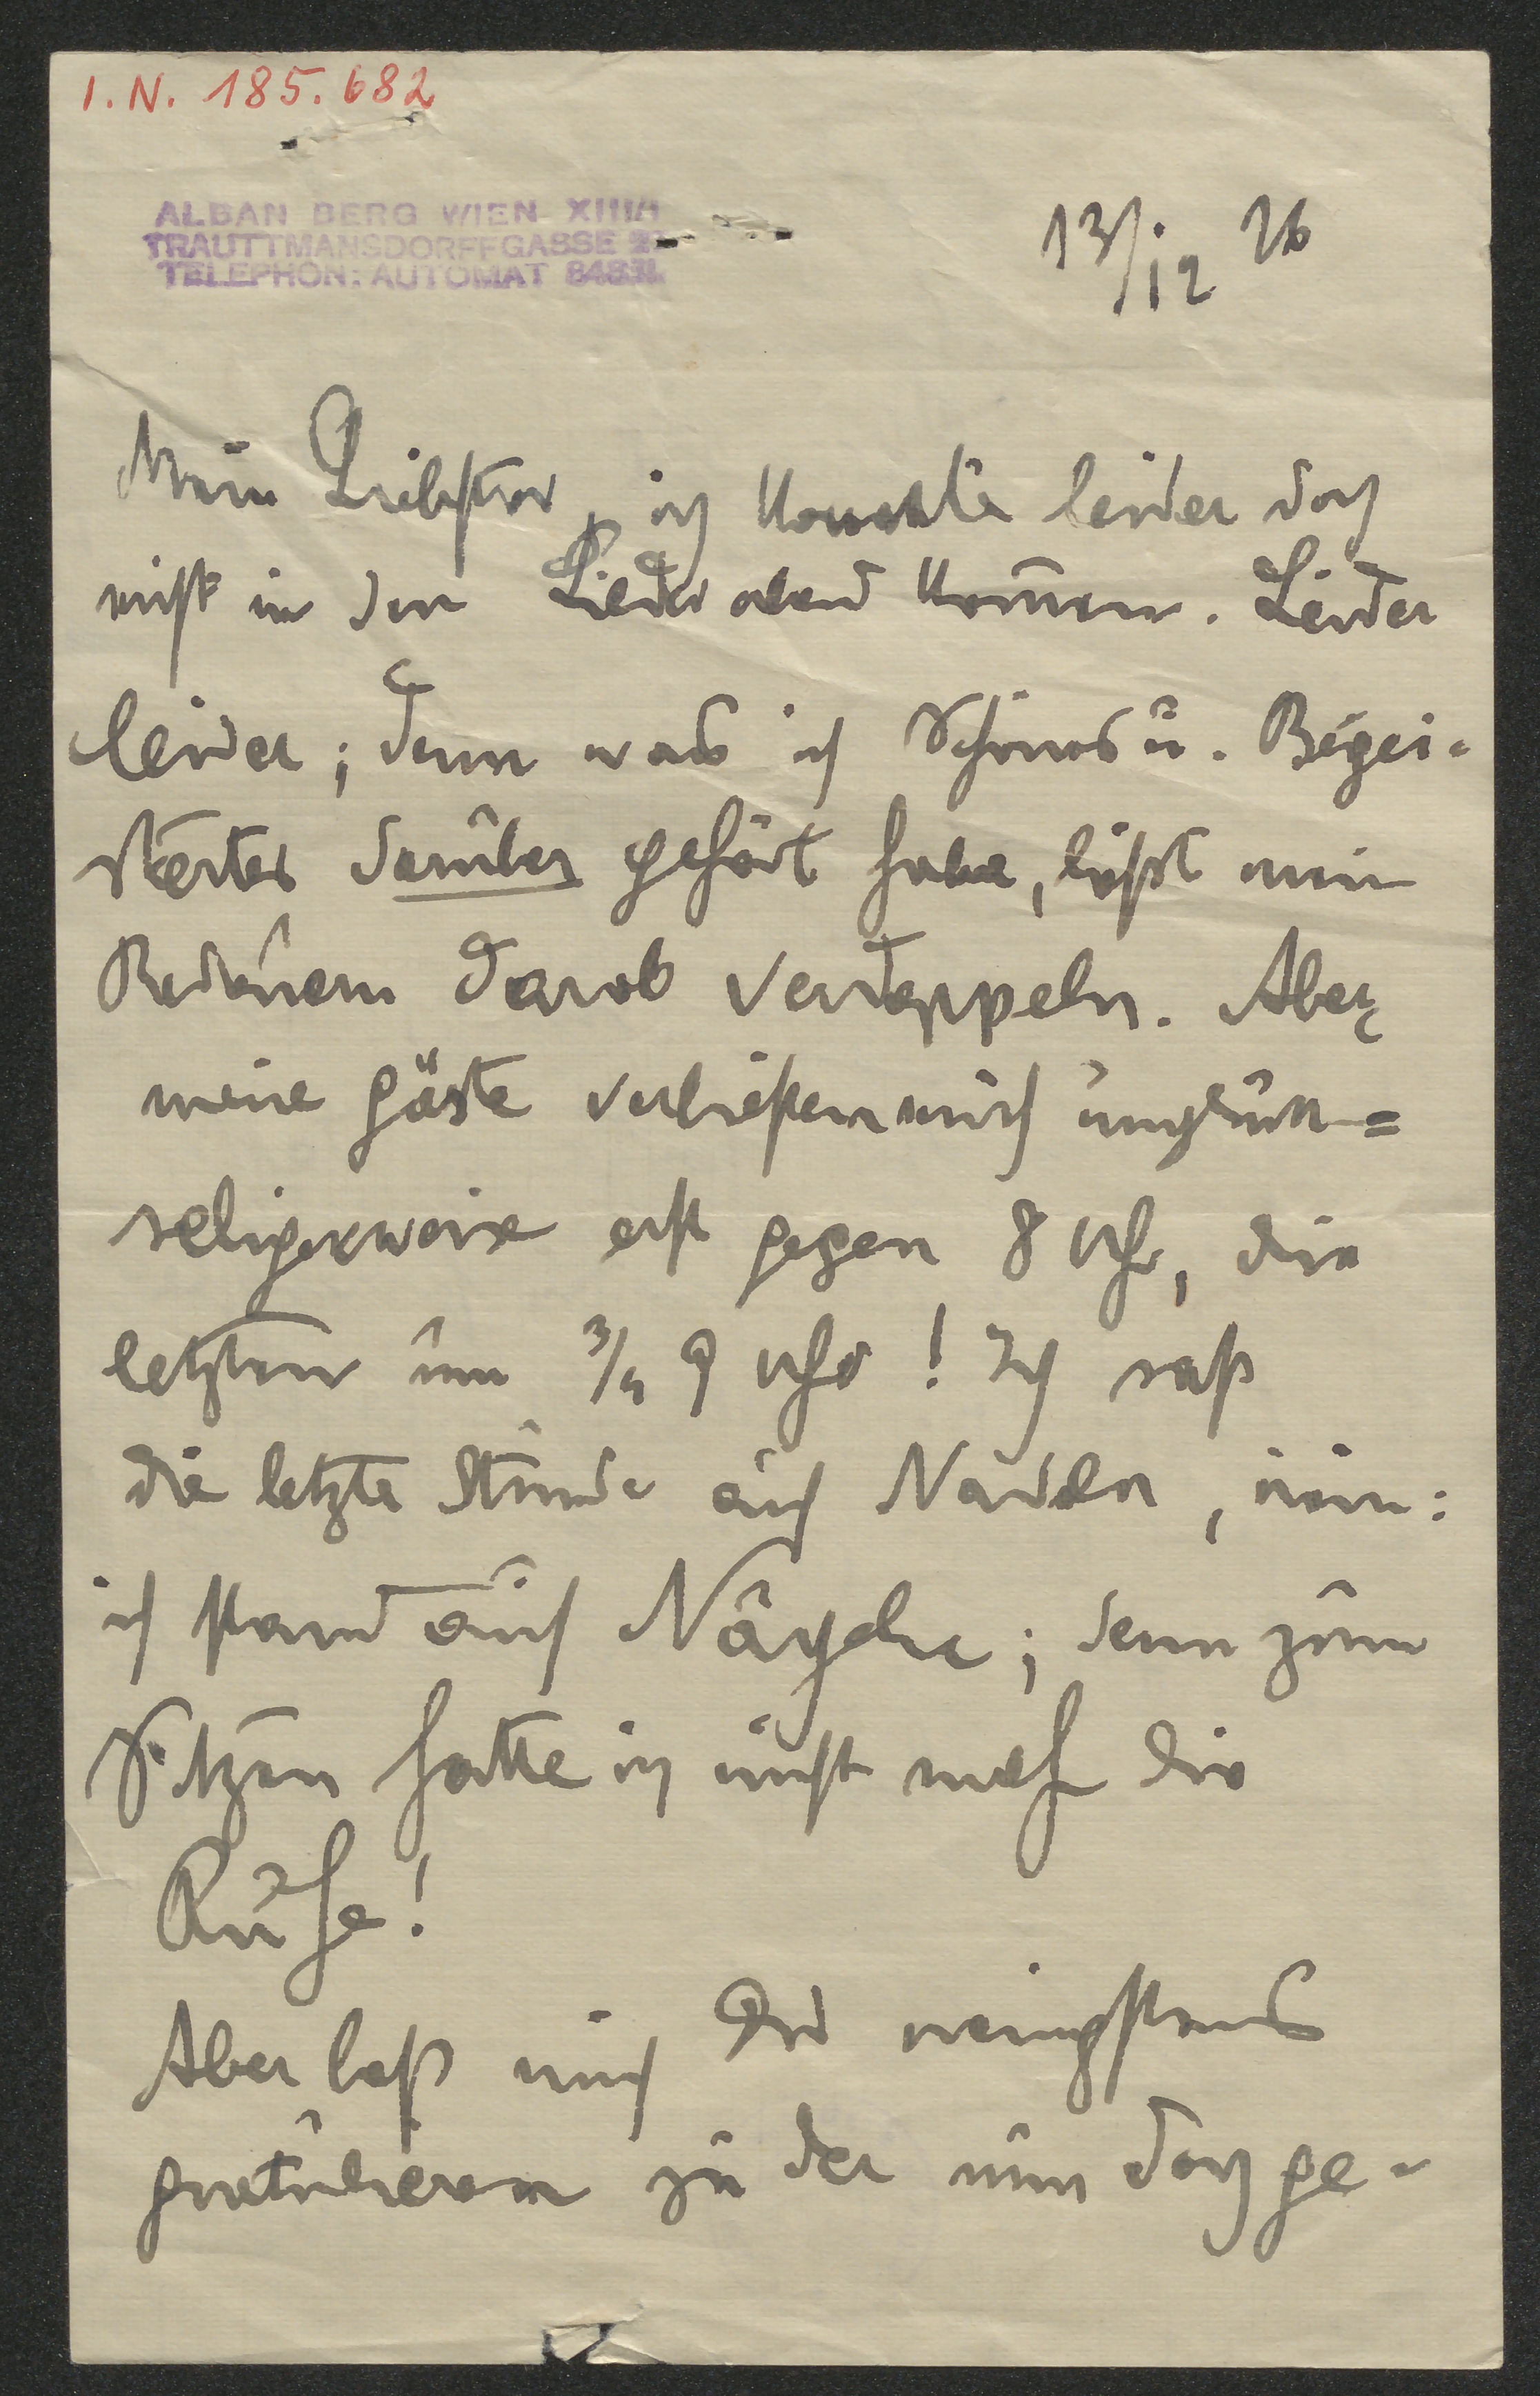 I. N. 185.682
ALBAN BERG WIEN XIII/1
TRAUTTMANSDORFFGASSE 27
TELEPHON: AUTOMAT 84831.
13/12 26
Mein Liebster, ich konnte leider doch
nicht in den Liederabend kom̅en. Leider
leider; denn was ich Schönes u. Begei-
stertes darüber gehört habe, läßt mein
Bedauern darob verdoppeln. Aber
meine Gäste verließen mich unglück=
seligerweise erst gegen 8 Uhr, die
letzten um ¾ 9 Uhr! Ich saß
die letzte Stunde auf Nadeln, nein:
ich stand auf Nägeln; denn zum
Sitzen hatte ich nicht mehr die
Ruhe!
Aber laß mich Dir wenigstens
gratulieren zu der nun doch ge-